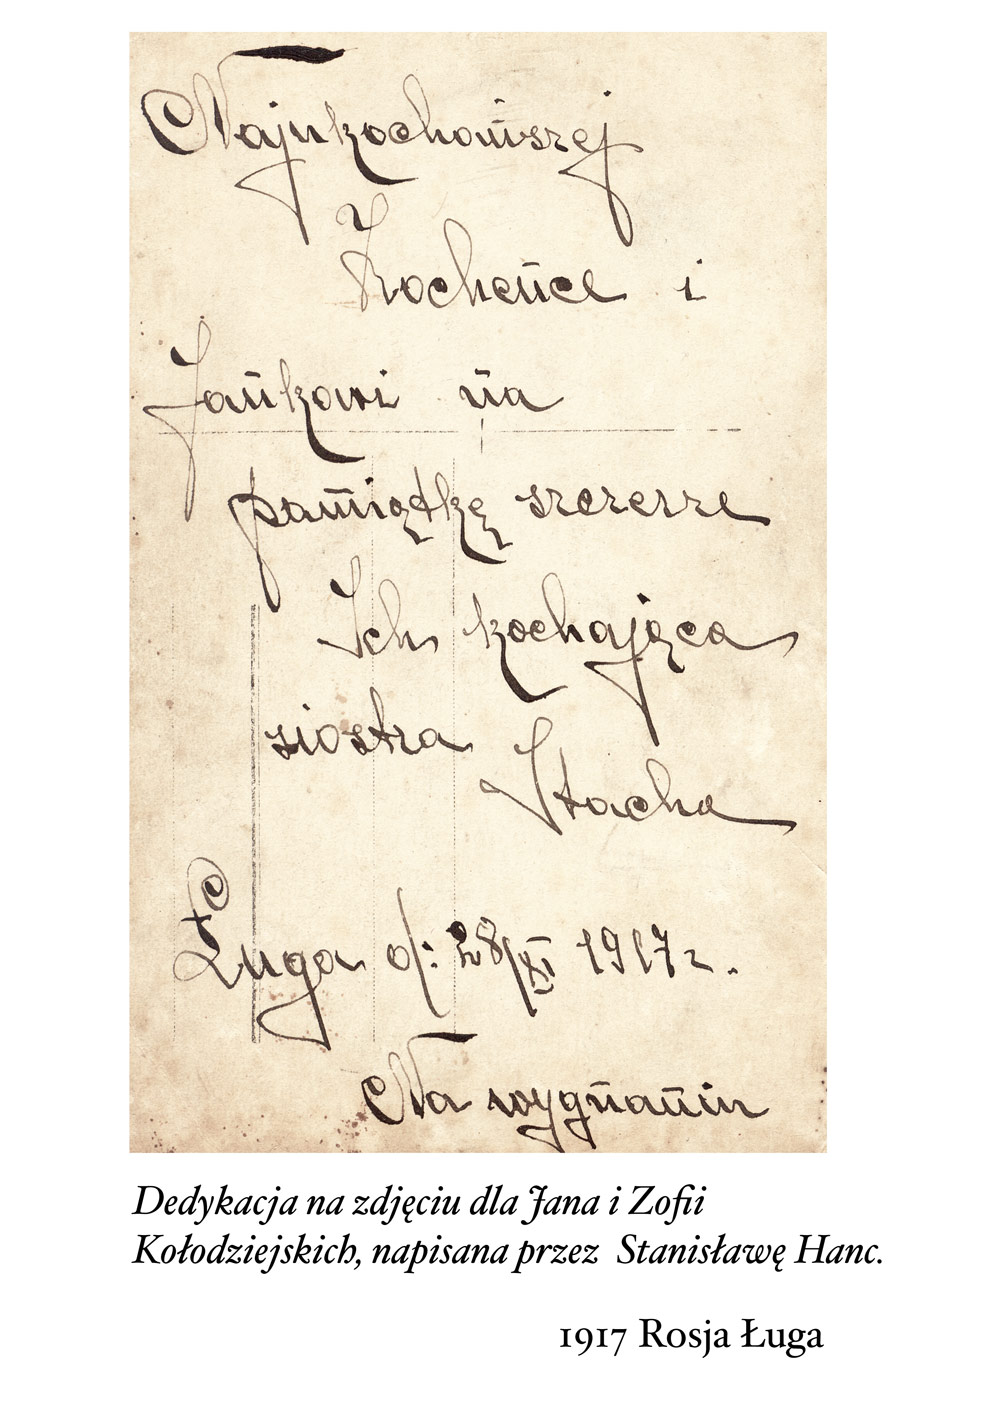 Najukochańszej
Zocheńce i
Jankowi na
pamiątkę szczerze
Ich kochająca
siostra Stacha
Ługa d: 28/XI 1917 r.
Na wygnaniu
Dedykacja na zdjęciu dla Jana i Zofii
Kołodziejskich, napisana przez Stanisławę Hanc.
1917 Rosja Ługa